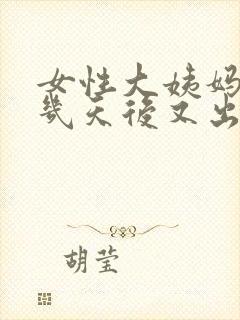 女性大姨妈
几天后又出
胡莹